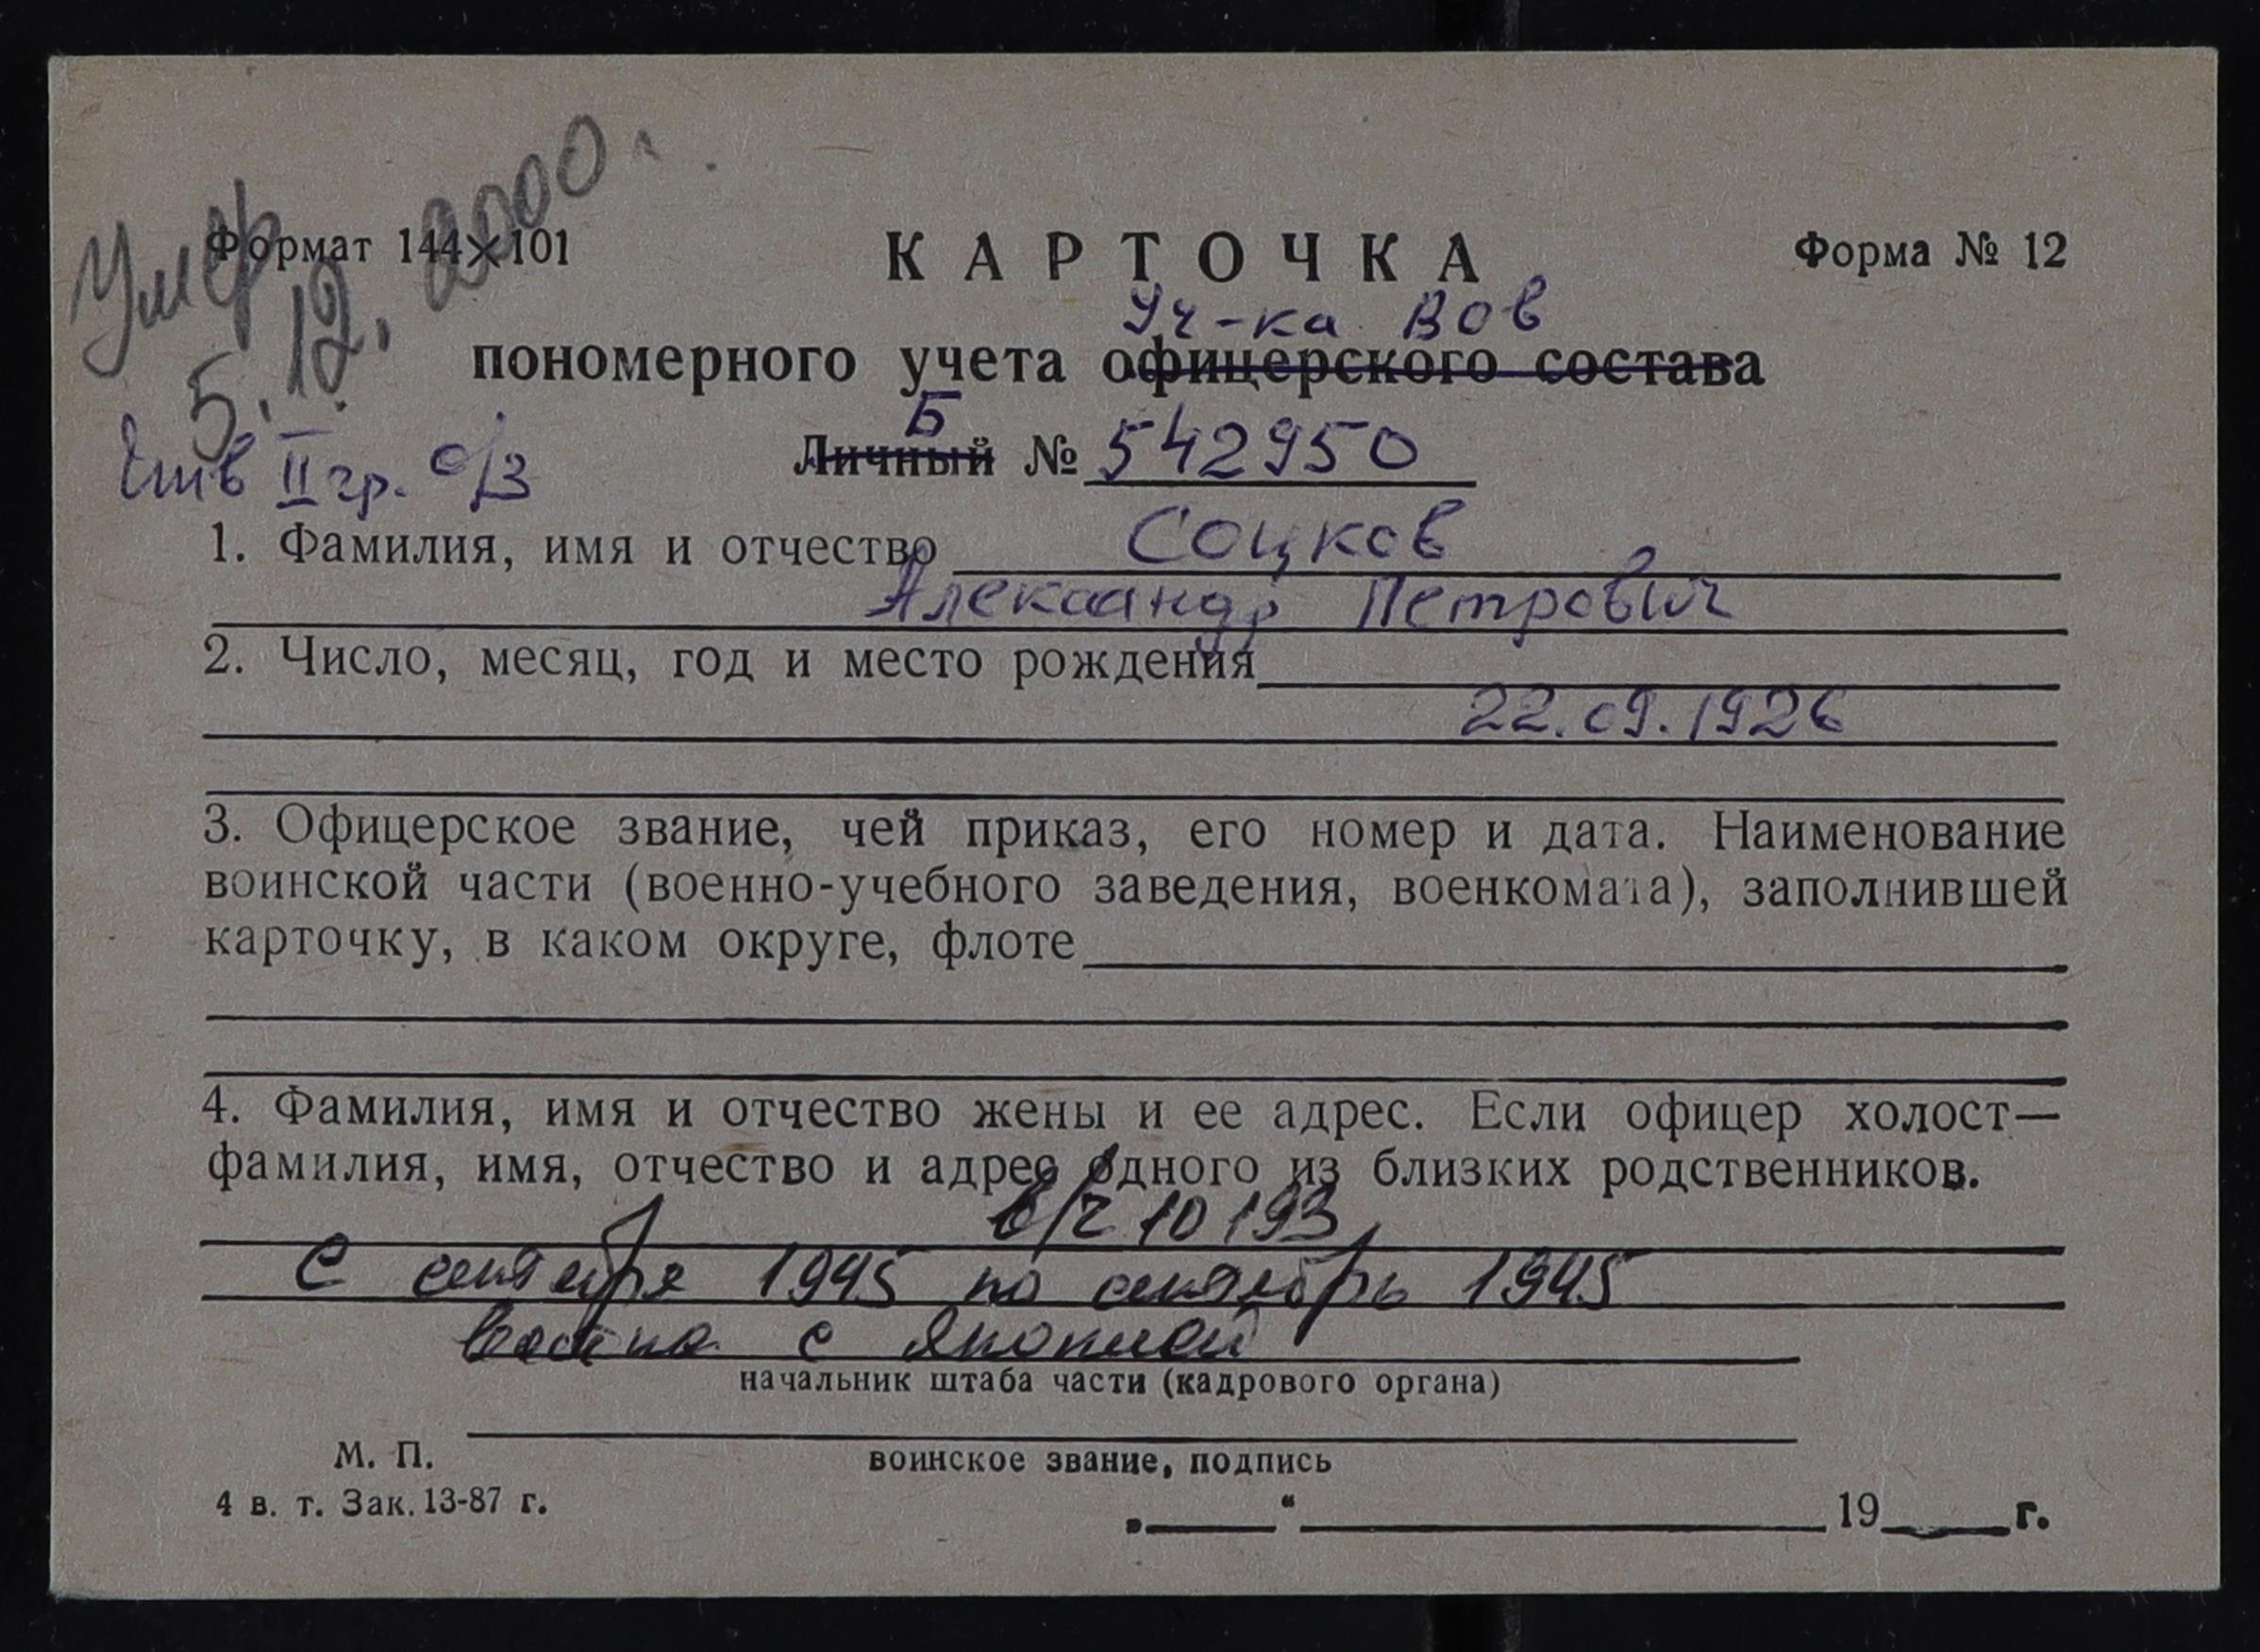 Умер
5.12.2000г.
Формат 144×101
Форма № 12
КАРТОЧКА
Уч-ка Вов
пономерного учета офицерского состава
Б
Личный № 542950
Инв II гр. о/з
1. Фамилия, имя и отчество Соцков
Александр Петрович
2. Число, месяц, год и место рождения
22.09.1926
3. Офицерское звание, чей приказ, его номер и дата. Наименование
воинской части (военно-учебного заведения, военкомата), заполнившей
карточку, в каком округе, флоте
4. Фамилия, имя и отчество жены и ее адрес. Если офицер холост—
фамилия, имя, отчество и адрес одного из близких родственников.
в/ч 10193
С сентября 1945 по сентябрь 1945
война с Японией
начальник штаба части (кадрового органа)
М. П.
воинское звание, подпись
4 в. т. Зак. 13-87 г.
„ “ 19 г.